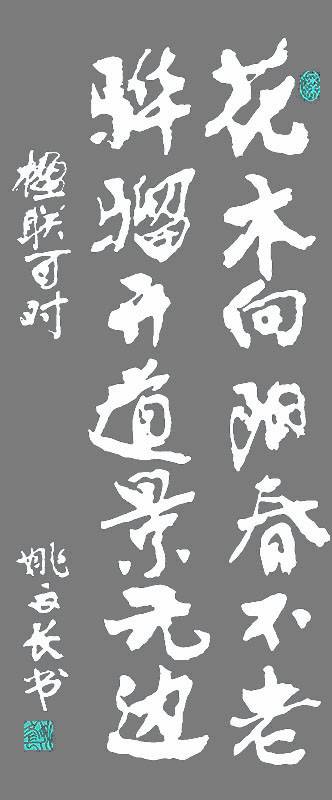 花木向阳春不老
骅骝开道景无边
楹联
姚 长书